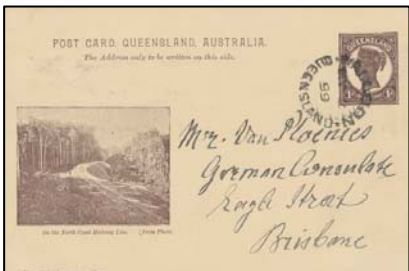 POST CARD. QUEENSLAND, AUSTRALIA.
The Address only to be written on this side.
QUEENSLAND
QUEENSLAND
99
On the North Coast Railway Line. (From Photo
Mr. Van Ploenies
German Consulate
Eagle Street
Brisbane